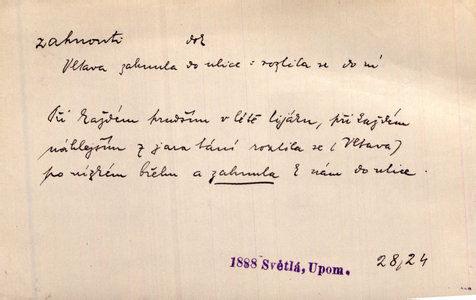 zahnouti dok
Vltava zahnula do ulice = rozlila se do ní
Při každém prudším v létě lijáku, při každém
náhlejším z jara tání rozlila se (Vltava)
po nízkém břehu a zahnula k nám do ulice.
1888 Světlá, Upom. 28, 24